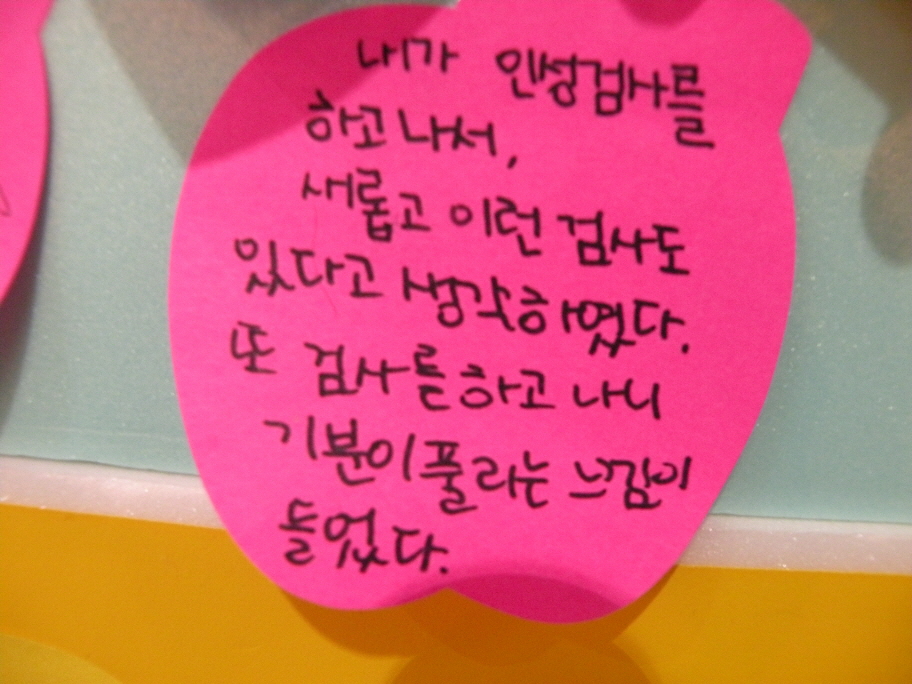 내가 인성검사를
하고 나서,
새롭고 이런 검사도
있다고 생각하였다.
또 검사를 하고 나니
기분이 풀라는 느낌이
들었다.